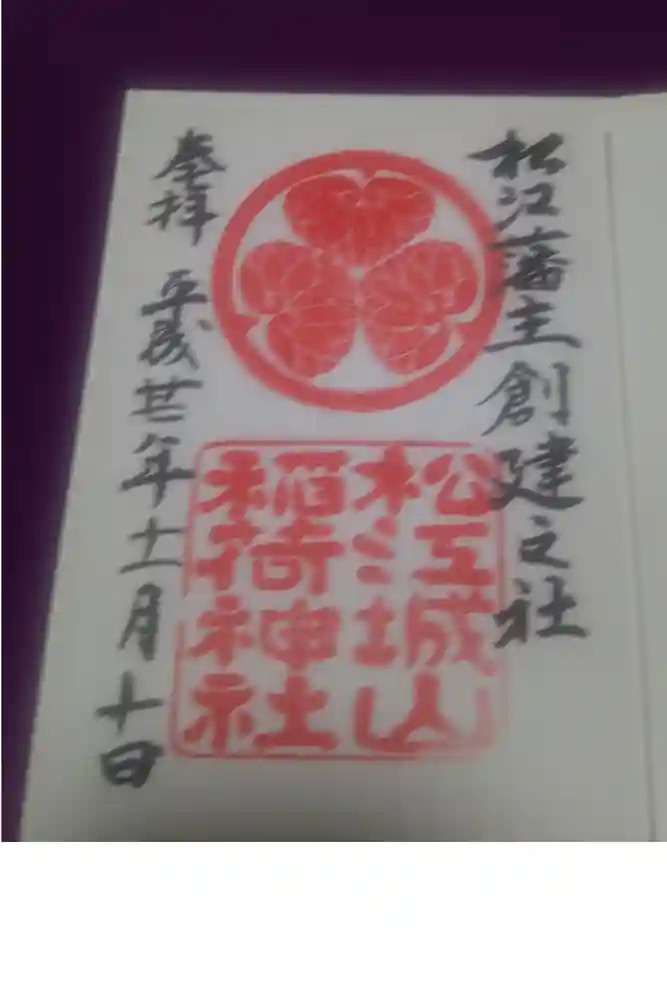 松江藩主創建之社
松江城山
稲荷神社
奉拝 平成廿二年十一月十日